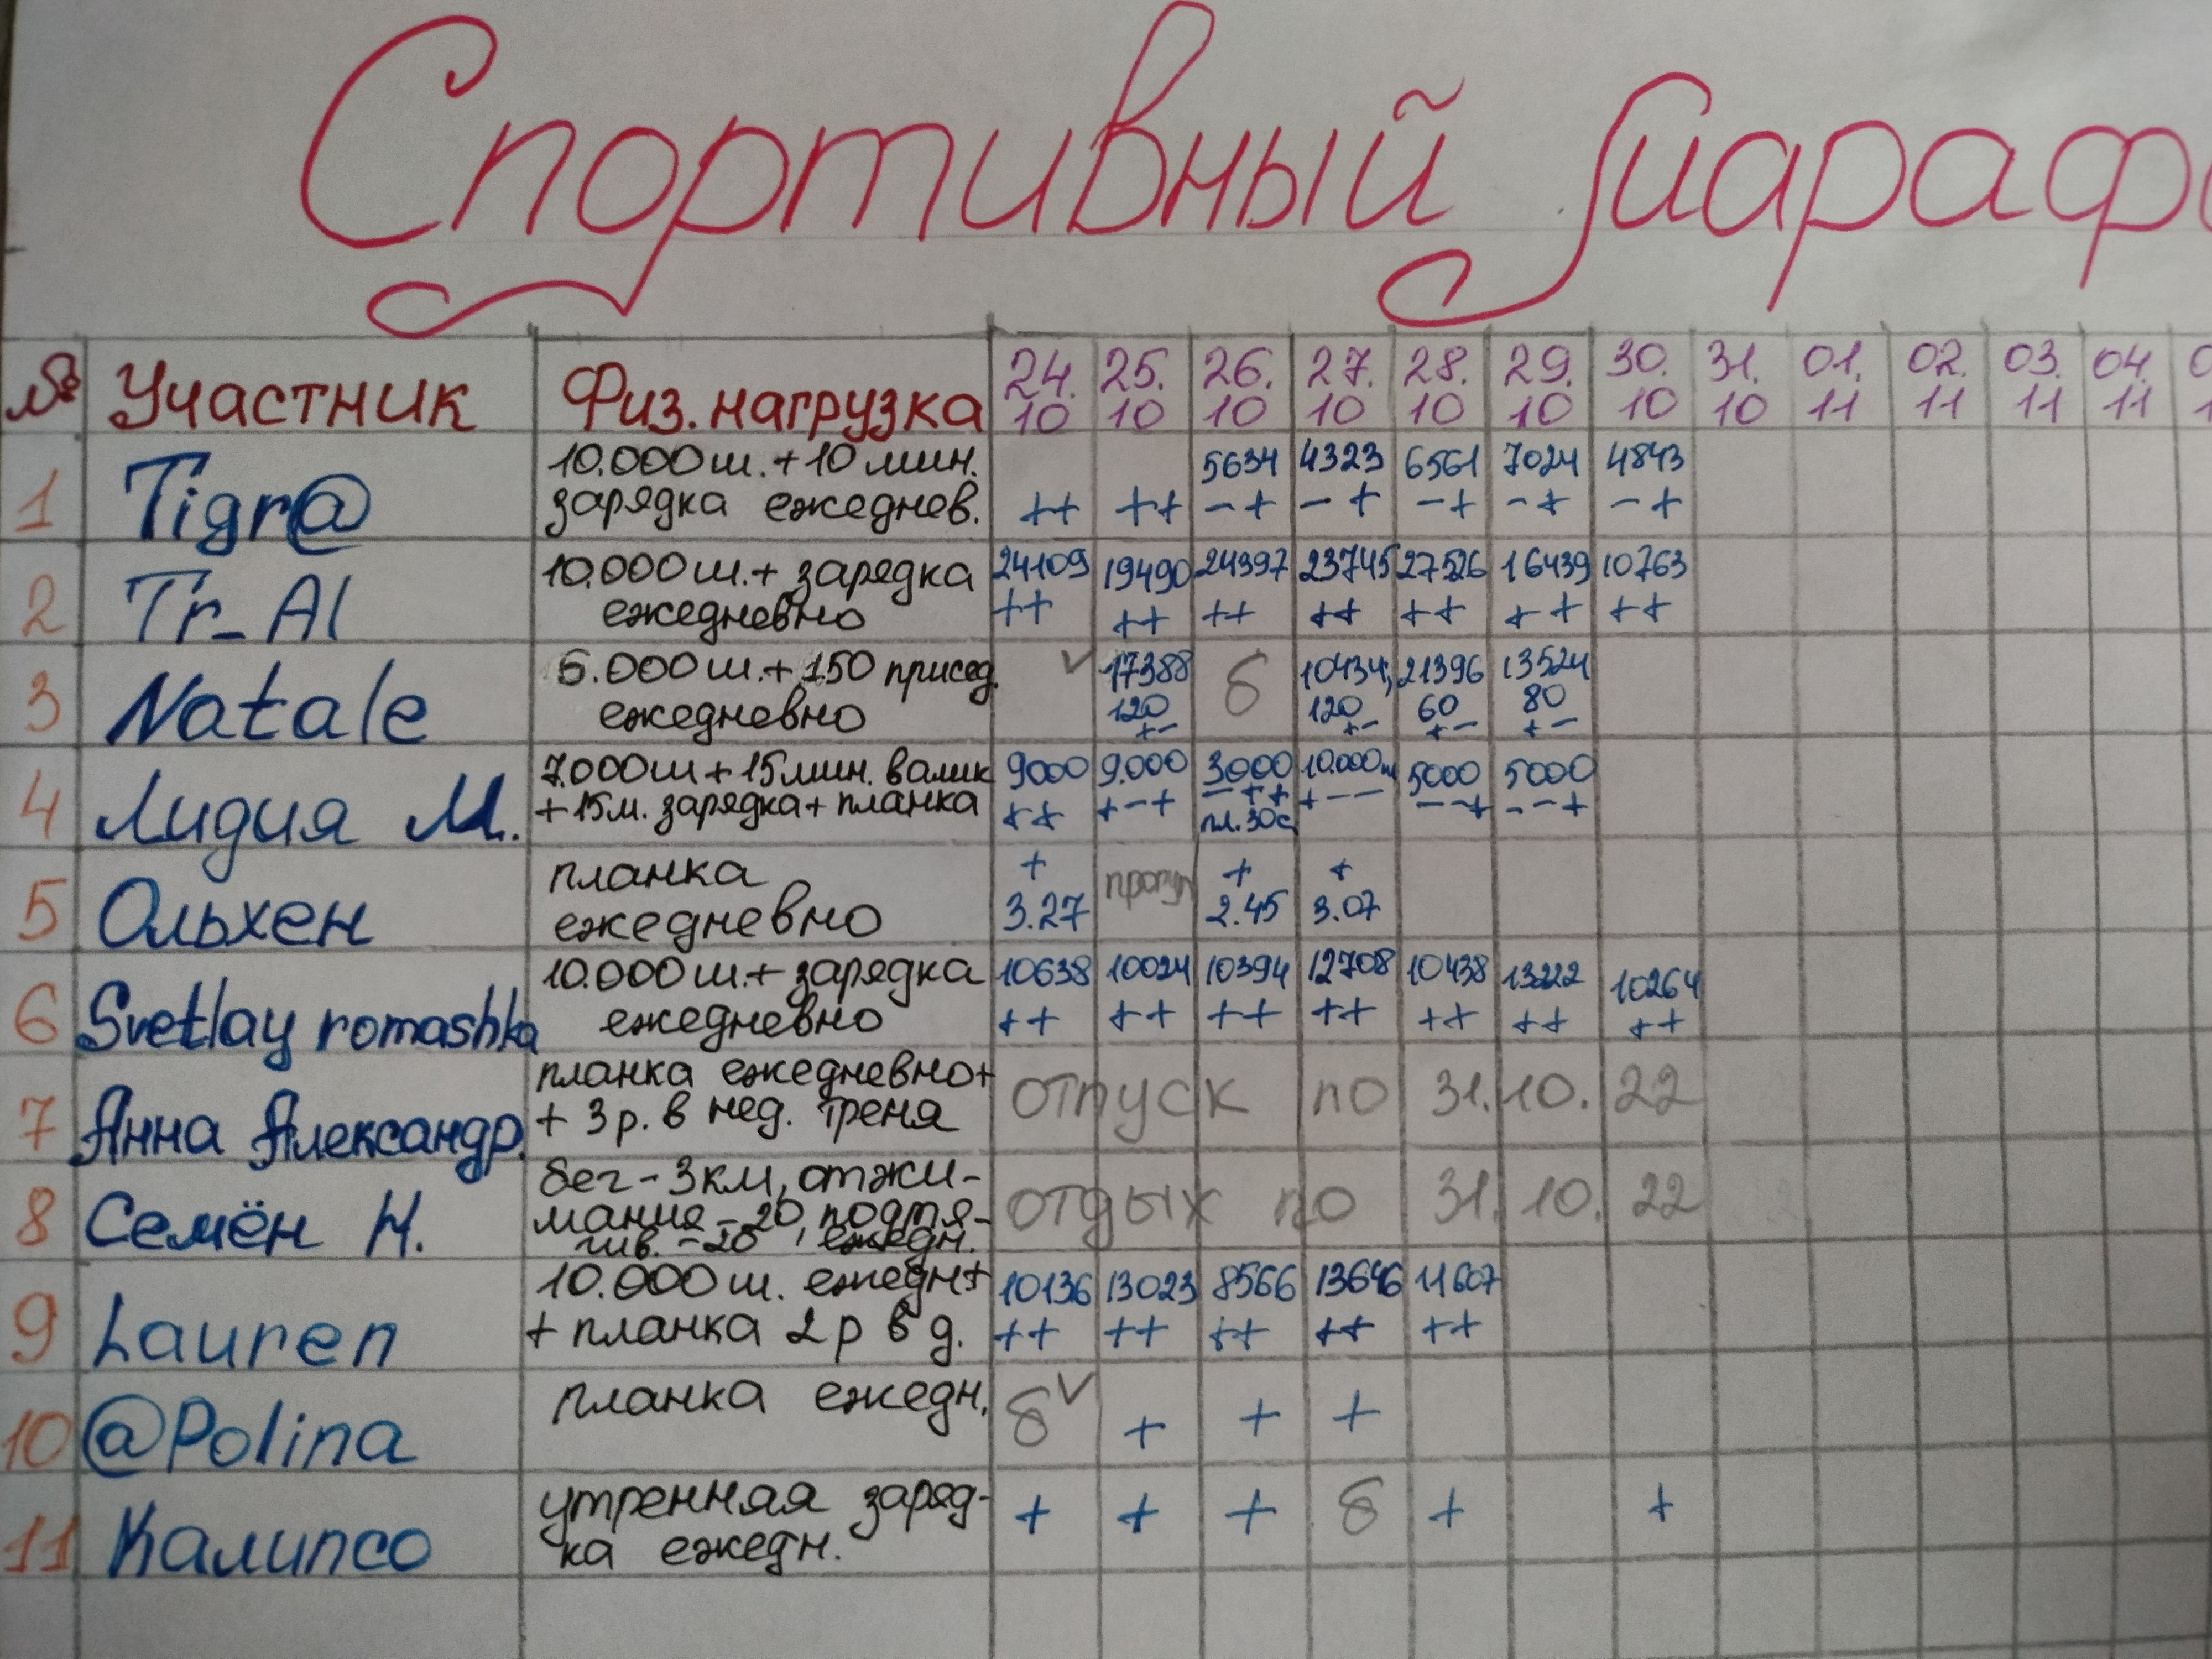 Спортивный Мараф
№ Участник Физ. нагрузка 24.10 25.10 26.10 27.10 28.10 29.10 30.10 31.10 01.11 02.11 03.11 04.11
1 Tigr@ 10.000 ш. + 10 мин. 5634 4323 6561 7024 4843
зарядка ежеднев. ++ ++ -+ -+ -+ -+ -+
2 Tr_Al 10.000 ш. + зарядка 24109 19490 24397 23745 27526 16439 10763
ежедневно ++ ++ ++ ++ ++ ++ ++
3 Natale 6.000 ш. + 150 присед. ✓ 17388 б 10434, 21396 13524
ежедневно 120 120 60 80
+- +- +- +-
4 Лидия М. 7.000 ш + 15 мин. валик 9000 9.000 3000 10.000ш 5000 5000
+ 15 м. зарядка + планка ++ +-+ -++ +-- --+ --+
пл. 30с
5 Ольхен планка + прогул + +
ежедневно 3.27 2.45 3.07
6 Svetlay romashka 10.000 ш. + зарядка 10638 10024 10394 12708 10438 13222 10264
ежедневно ++ ++ ++ ++ ++ ++ ++
7 Анна Александр. планка ежедневно + отпуск по 31.10.22
+ 3 р. в нед. треня
8 Семён Н. бег - 3 км, отжи- отдых по 31.10.22
мания - 20, подтя-
гив. - 20, ежедн.
9 Lauren 10.000 ш. ежедн + 10136 13023 8566 13646 11607
+ планка 2 р в д. ++ ++ ++ ++ ++
10 @Polina планка ежедн. б ✓ + + +
11 Калипсо утренняя заряд- + + + б + +
ка ежедн.